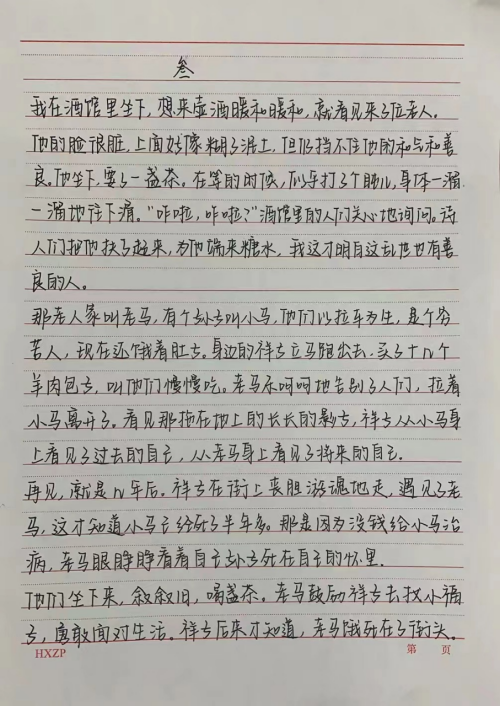 叁
我在酒馆里坐下，想来壶酒暖和暖和，就看见来了位老人。
他的脸很脏，上面好像糊了泥土，但仍挡不住他的和与和善
良。他坐下，要了一盏茶。在等的时候，似乎打了个盹儿，身体一溜
一溜地往下滑。“咋啦，咋啦？”酒馆里的人们关心地询问。诸
人们把他扶了起来，为他端来糖水，我这才明白这乱世也有善
良的人。
那老人家叫老马，有个孙子叫小马，他们以拉车为生，是个穷
苦人，现在还饿着肚子。身边的祥子立马跑出去，买了十几个
羊肉包子，叫他们慢慢吃。老马乐呵呵地告别了人们，拉着
小马离开了。看见那拖在地上的长长的影子，祥子从小马身
上看见了过去的自己，从老马身上看见了将来的自己.
再见，就是几年后。祥子在街上丧胆游魂地走，遇见了老
马，这才知道小马已经死了半年多。那是因为没钱给小马治
病，老马眼睁睁看着自己孙子死在自己的怀里.
他们坐下来，叙叙旧，喝盏茶。老马鼓励祥子去找小福
子，勇敢面对生活。祥子后来才知道，老马饿死在了街头。
HXZP 第 页